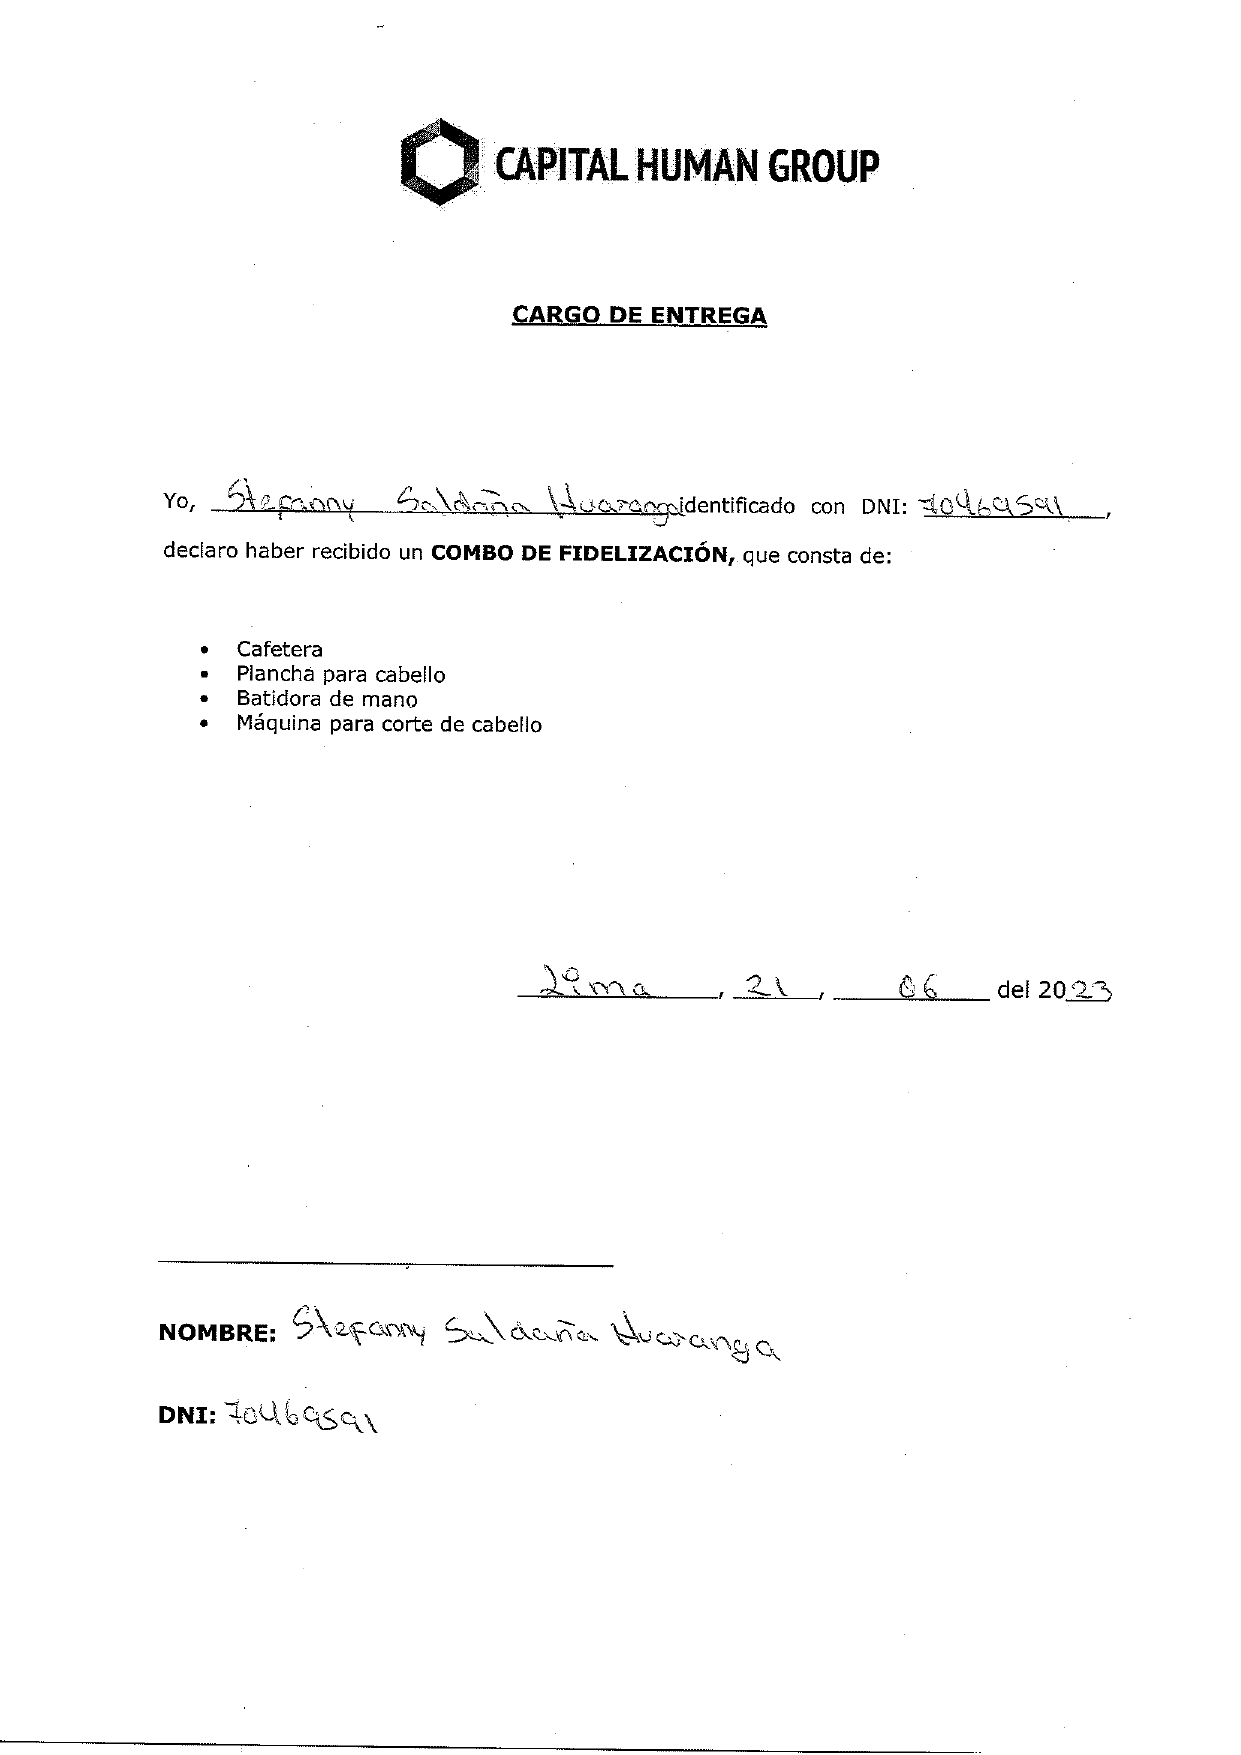 CAPITAL HUMAN GROUP
CARGO DE ENTREGA
Yo, Stefanny Saldaña Huaranga identificado con DNI: 70469591,
declaro haber recibido un COMBO DE FIDELIZACIÓN, que consta de:
• Cafetera
• Plancha para cabello
• Batidora de mano
• Máquina para corte de cabello
Lima, 21, 06 del 2023
NOMBRE: Stefanny Saldaña Huaranga
DNI: 70469591